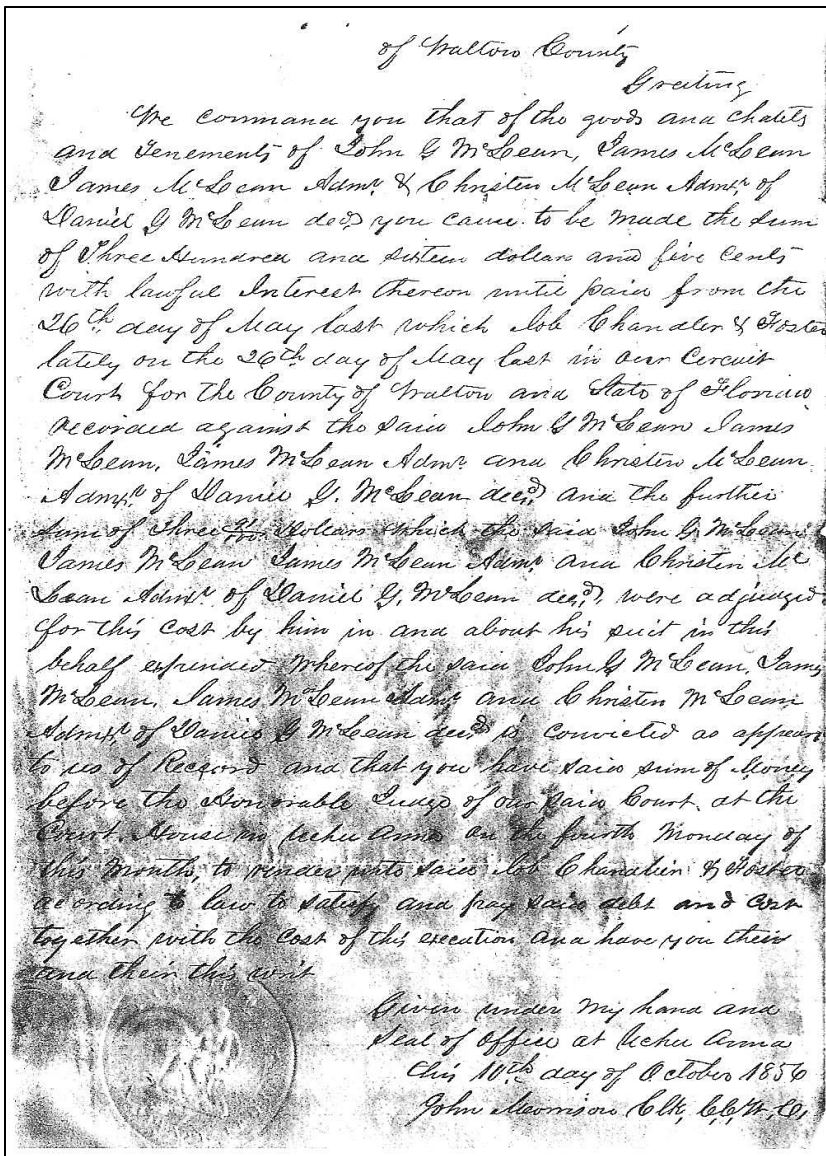 of Walton County
Greeting
We command you that of the goods and chatels
and Tenements of John G McLean, James McLean
James McLean Admr & Christen McLean Admxr of
Daniel G McLean decd you cause to be made the sum
of Three Hundred and sixteen dollars and five cents
with lawful Interest thereon until paid from the
26th day of May last which Job Chandler & Foster
lately on the 26th day of May last in our Circuit
Court for the County of Walton and State of Florida
recorded against the said John G McLean James
McLean, James McLean Admr and Christen McLean
Admxr of Daniel G. McLean decd and the further
sum of Three 91/100 Dollars which the said John G McLean
James McLean James McLean Admr and Christen Mc
Lean Admxr of Daniel G. McLean decd, were adjudged
for this cost by him in and about his suit in this
behalf expended whereof the said John G McLean, James
McLean, James McLean Admr and Christen McLean
Admxr of Daniel G McLean decd is convicted as appears
to us of Reccord and that you have said sum of Money
before the Honorable Judge of our said Court, at the
Court House in Uchee Anna on the fourth Monday of
this Month, to render unto said Job Chandler & Foster
acording to law to satisfy and pay said debt and Cost
together with the Cost of this execution and have you their
and their this writ
Given under my hand and
Seal of office at Uchee Anna
this 10th day of October 1856
John Morrison Clk, C.C.W.C,